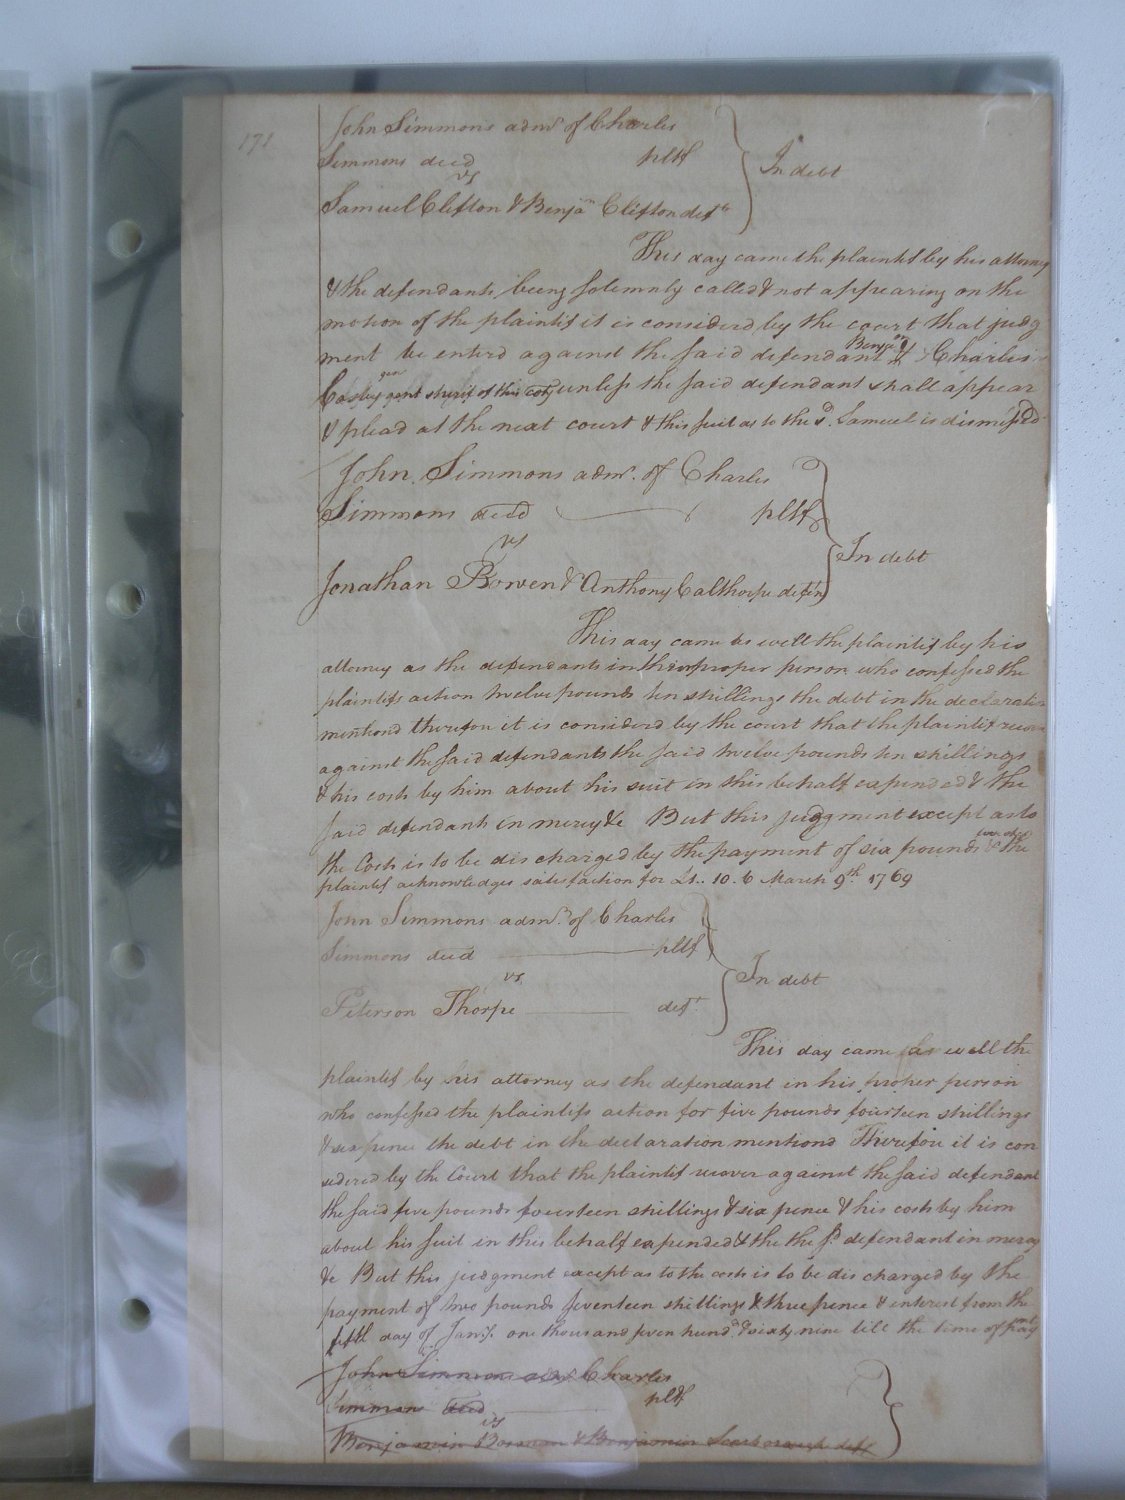 171
John Simmons admr. of Charles
Simmons decd pltf
vs
In debt
Samuel Clifton & Benjan Clifton defts
This day came the plaintif by his attorney
& the defendants being solemnly called & not appearing on the
motion of the plaintif it is considerd by the court that judg
ment be enterd against the said defendant Benjan & Charles
Cosby gent sherif of this coty unless the said defendant shall appear
& plead at the next court & this suit as to the sd. Samuel is dismissd
John Simmons admr. of Charles
Simmons decd pltf
vs
In debt
Jonathan Bowen & Anthony Calthorpe defts
This day came as well the plaintif by his
attorney as the defendants in their proper person who confessed the
plaintifs action twelve pounds ten shillings the debt in the declaration
mentiond therefore it is considerd by the court that the plaintif recover
against the said defendants the said twelve pounds ten shillings
& his costs by him about his suit in this behalf expended & the
said defendants in mercy &c But this judgment except as to
the Costs is to be discharged by the payment of six pounds & the
plaintif acknowledges satisfaction for £1.. 10. 6 March 9th 1769
John Simmons admr. of Charles
Simmons decd pltf
vs
In debt
Peterson Thorpe deft.
This day came as well the
plaintif by his attorney as the defendant in his proper person
who confessed the plaintifs action for five pounds fourteen shillings
& six pence the debt in the declaration mentiond Therefore it is con
siderd by the Court that the plaintif recover against the said defendant
the said five pounds fourteen shillings & six pence & his costs by him
about his suit in this behalf expended & the the sd. defendant in mercy
&c But this judgment except as to the costs is to be discharged by the
payment of two pounds seventeen shillings & three pence & interest from the
fifth day of Jany. one thousand seven hundd. & sixty nine till the time of payment
John Simmons adr Charles
Simmons decd pltf
vs
Benjamin Bowman & Benjamin Scarborough defts